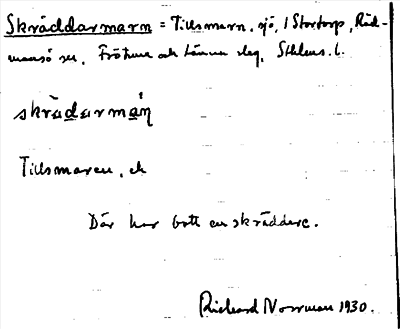 Skräddarmarn = Tillsmarn, sjö, i Stortorp, Råd-
mansö sn, Frötuna och Länna skg, Sthlms l.
skrädarmån
Tillsmaren, ek
Där har bott en skräddare.
Rickard Norrman 1930.